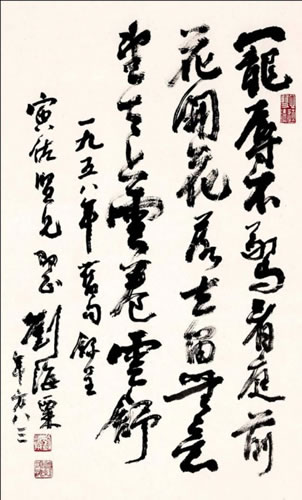 寵辱不驚看庭前
花開花落去留無意
望天上雲卷雲舒
一九五八年舊句錄呈
寅佑賢兄 正 劉海粟
年方八三